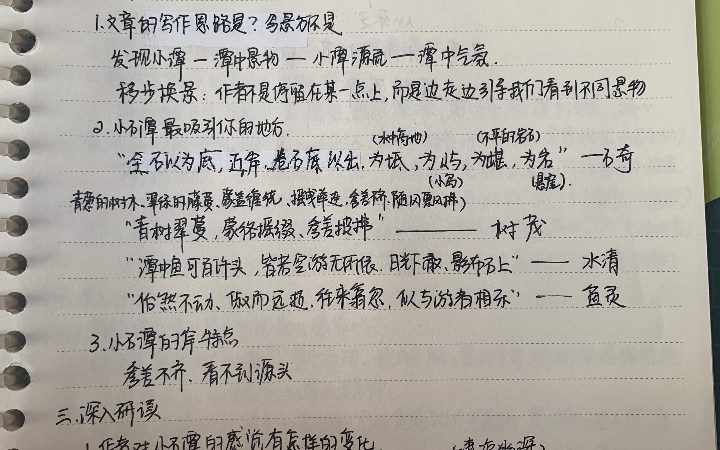 1.文章的写作思路是？写景方法是
发现小潭 — 潭中景物 — 小潭源流 — 潭中气氛.
移步换景：作者不是停留在某一点上，而是边走边引导我们看到不同景物
2.小石潭最吸引你的地方.
(水中高地) (不平的岩石)
“全石以为底，近岸，卷石底以出，为坻，为屿，为嵁，为岩” —石奇
(小岛) (悬崖).
青葱的树木、翠绿的藤蔓，蒙盖缠绕，摇曳牵连，参差不齐，随风飘拂)
“青树翠蔓，蒙络摇缀、参差披拂” —— 树茂
“潭中鱼可百许头，皆若空游无所依，日光下澈、影布石上” —— 水清
“佁然不动、俶而远逝，往来翕忽，似与游者相乐” —— 鱼灵
3.小石潭的岸特点
参差不齐、看不到源头
三.深入研读
1.作者对小石潭的感觉有怎样的变化